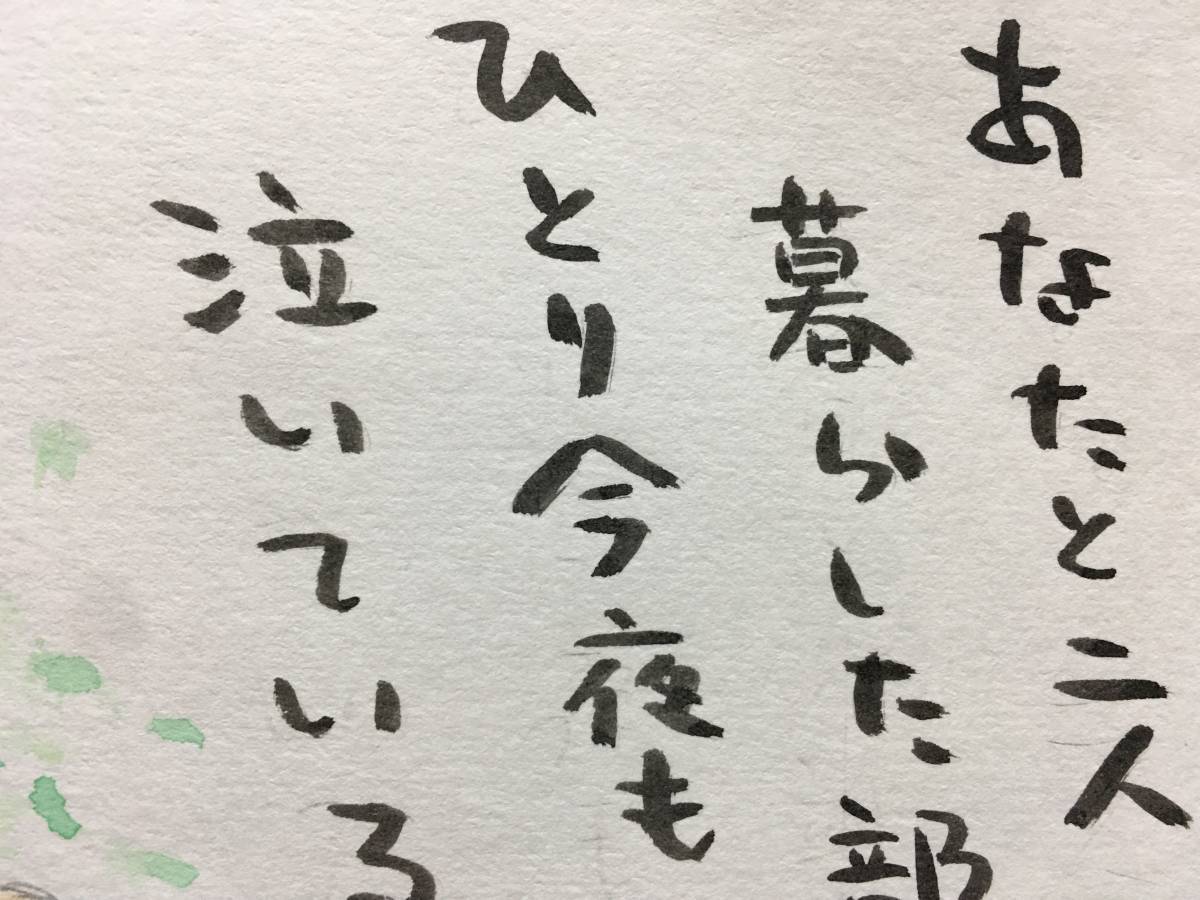 あなたと二人
暮らした部
ひとり今夜も
泣いている